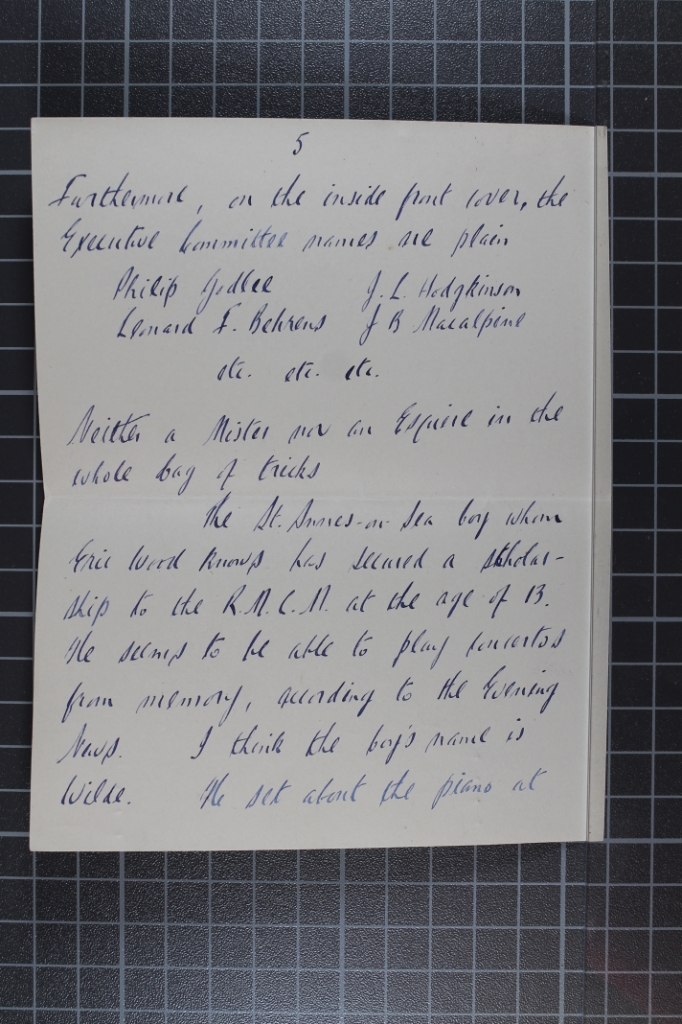 5
Furthermore, on the inside front cover, the
Executive Committee names are plain
Philip Godlee J. L. Hodgkinson
Leonard F. Behrens J B Macalpine
etc. etc. etc.
Neither a Mister nor an Esquire in the
whole bag of tricks
The St. Annes-on-Sea boy whom
Eric Wood knows has secured a scholar-
ship to the R.M.C.M. at the age of 13.
He seems to be able to play concertos
from memory, according to the Evening
News. I think the boy's name is
Wilde. He set about the piano at